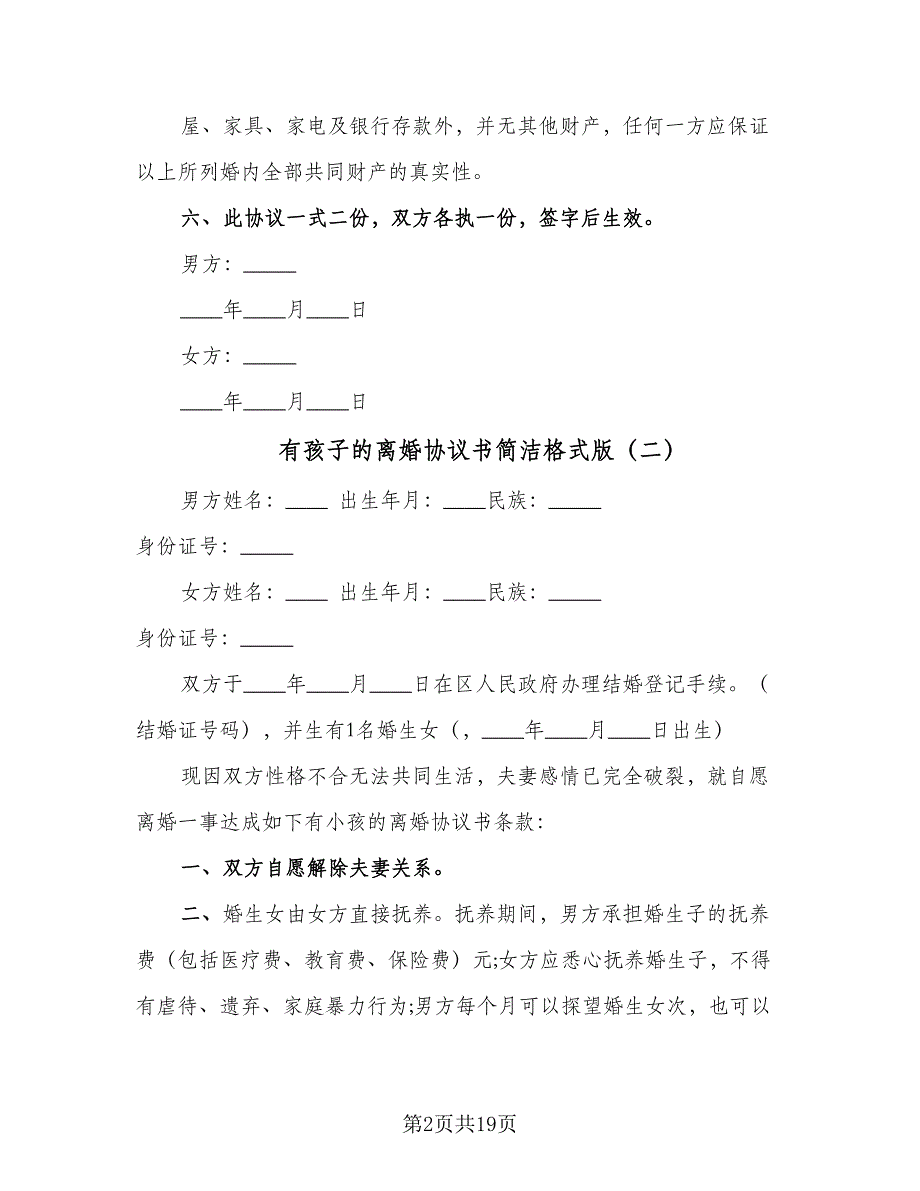 屋、家具、家电及银行存款外，并无其他财产，任何一方应保证
以上所列婚内全部共同财产的真实性。
六、此协议一式二份，双方各执一份，签字后生效。
男方：_____
____年____月____日
女方：_____
____年____月____日
有孩子的离婚协议书简洁格式版（二）
男方姓名：____ 出生年月：____民族：_____
身份证号：_____
女方姓名：____ 出生年月：____民族：_____
身份证号：_____
双方于____年____月____日在区人民政府办理结婚登记手续。（
结婚证号码），并生有1名婚生女（，____年____月____日出生）
现因双方性格不合无法共同生活，夫妻感情已完全破裂，就自愿
离婚一事达成如下有小孩的离婚协议书条款：
一、双方自愿解除夫妻关系。
二、婚生女由女方直接抚养。抚养期间，男方承担婚生子的抚养
费（包括医疗费、教育费、保险费）元;女方应悉心抚养婚生子，不得
有虐待、遗弃、家庭暴力行为;男方每个月可以探望婚生女次，也可以
第2页共19页